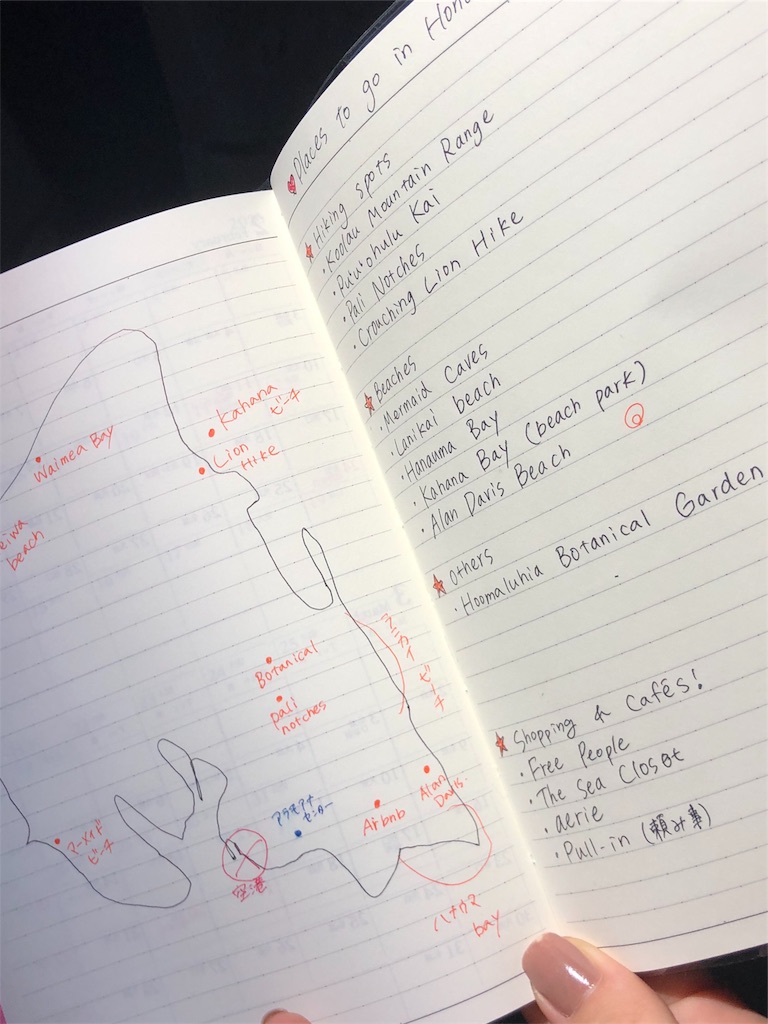 Waimea Bay
Kahana
ビーチ
Lion
Hike
eiwa
beach
ラニカイ ビーチ
Botanical
pali
notches
アラモアナ
センター
Airbnb
Alan
Davis.
マーメイド
ビーチ
空港
ハナウマ
bay
Places to go in Hono
Hiking spots
・Koolau Mountain Range
・Pu'u'ohulu Kai
・Pali Notches
・Crouching Lion Hike
Beaches
・Mermaid Caves
・Lanikai beach
・Hanauma Bay
・Kahana Bay (beach park)
・Alan Davis Beach
Others
・Hoomaluhia Botanical Garden
Shopping & Cafés!
・Free People
・The Sea Closet
・aerie
・Pull-in (頼み事)